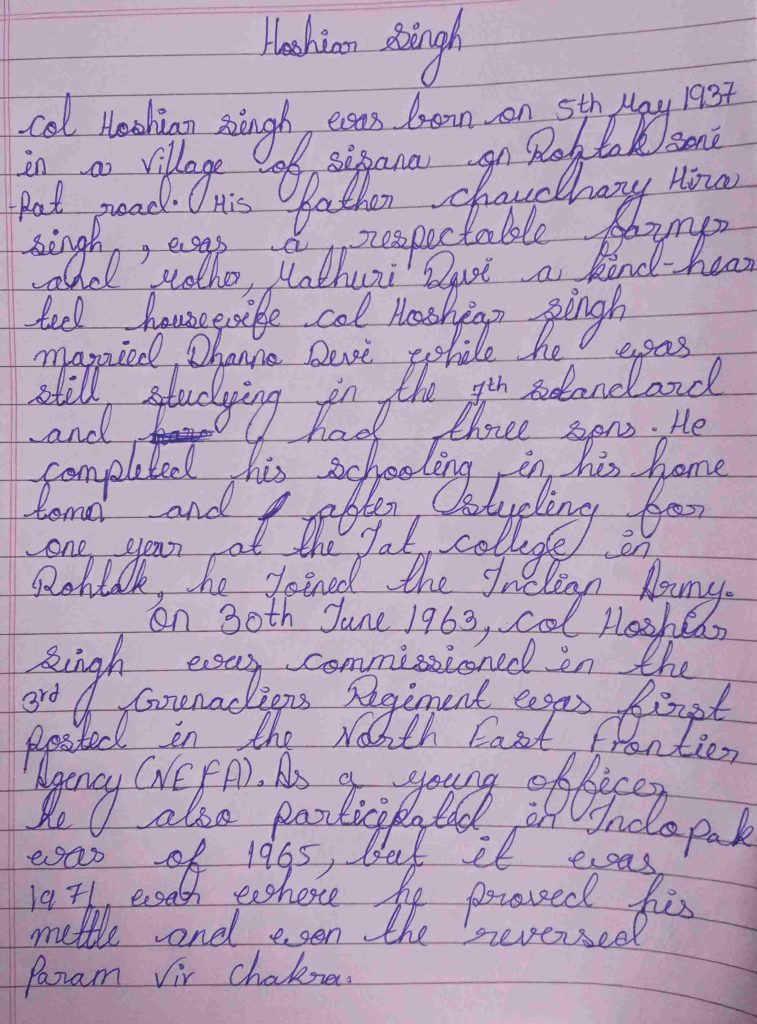 Hoshiar Singh
Col Hoshiar singh was born on 5th May 1937
in a village of sisana on Rohtak Soni
-Pat road. His father chaudhary Hira
singh, was a respectable farmer
and Mother, Mathuri Devi a kind-hear
ted housewife col Hoshiar singh
married Dhanno Devi while he was
still studying in the 7th standard
and had three sons. He
completed his schooling in his home
town and after studing for
one year at the Jat college in
Rohtak, he Joined the Indian Army.
On 30th June 1963, Col Hoshiar
Singh was commissioned in the
3rd Grenadiers Regiment was first
posted in the North East Frontier
Agency (NEFA). As a young officer
he also participated in Indopak
was of 1965, but it was
1971 war where he proved his
mettle and won the reversed
Param Vir Chakra.